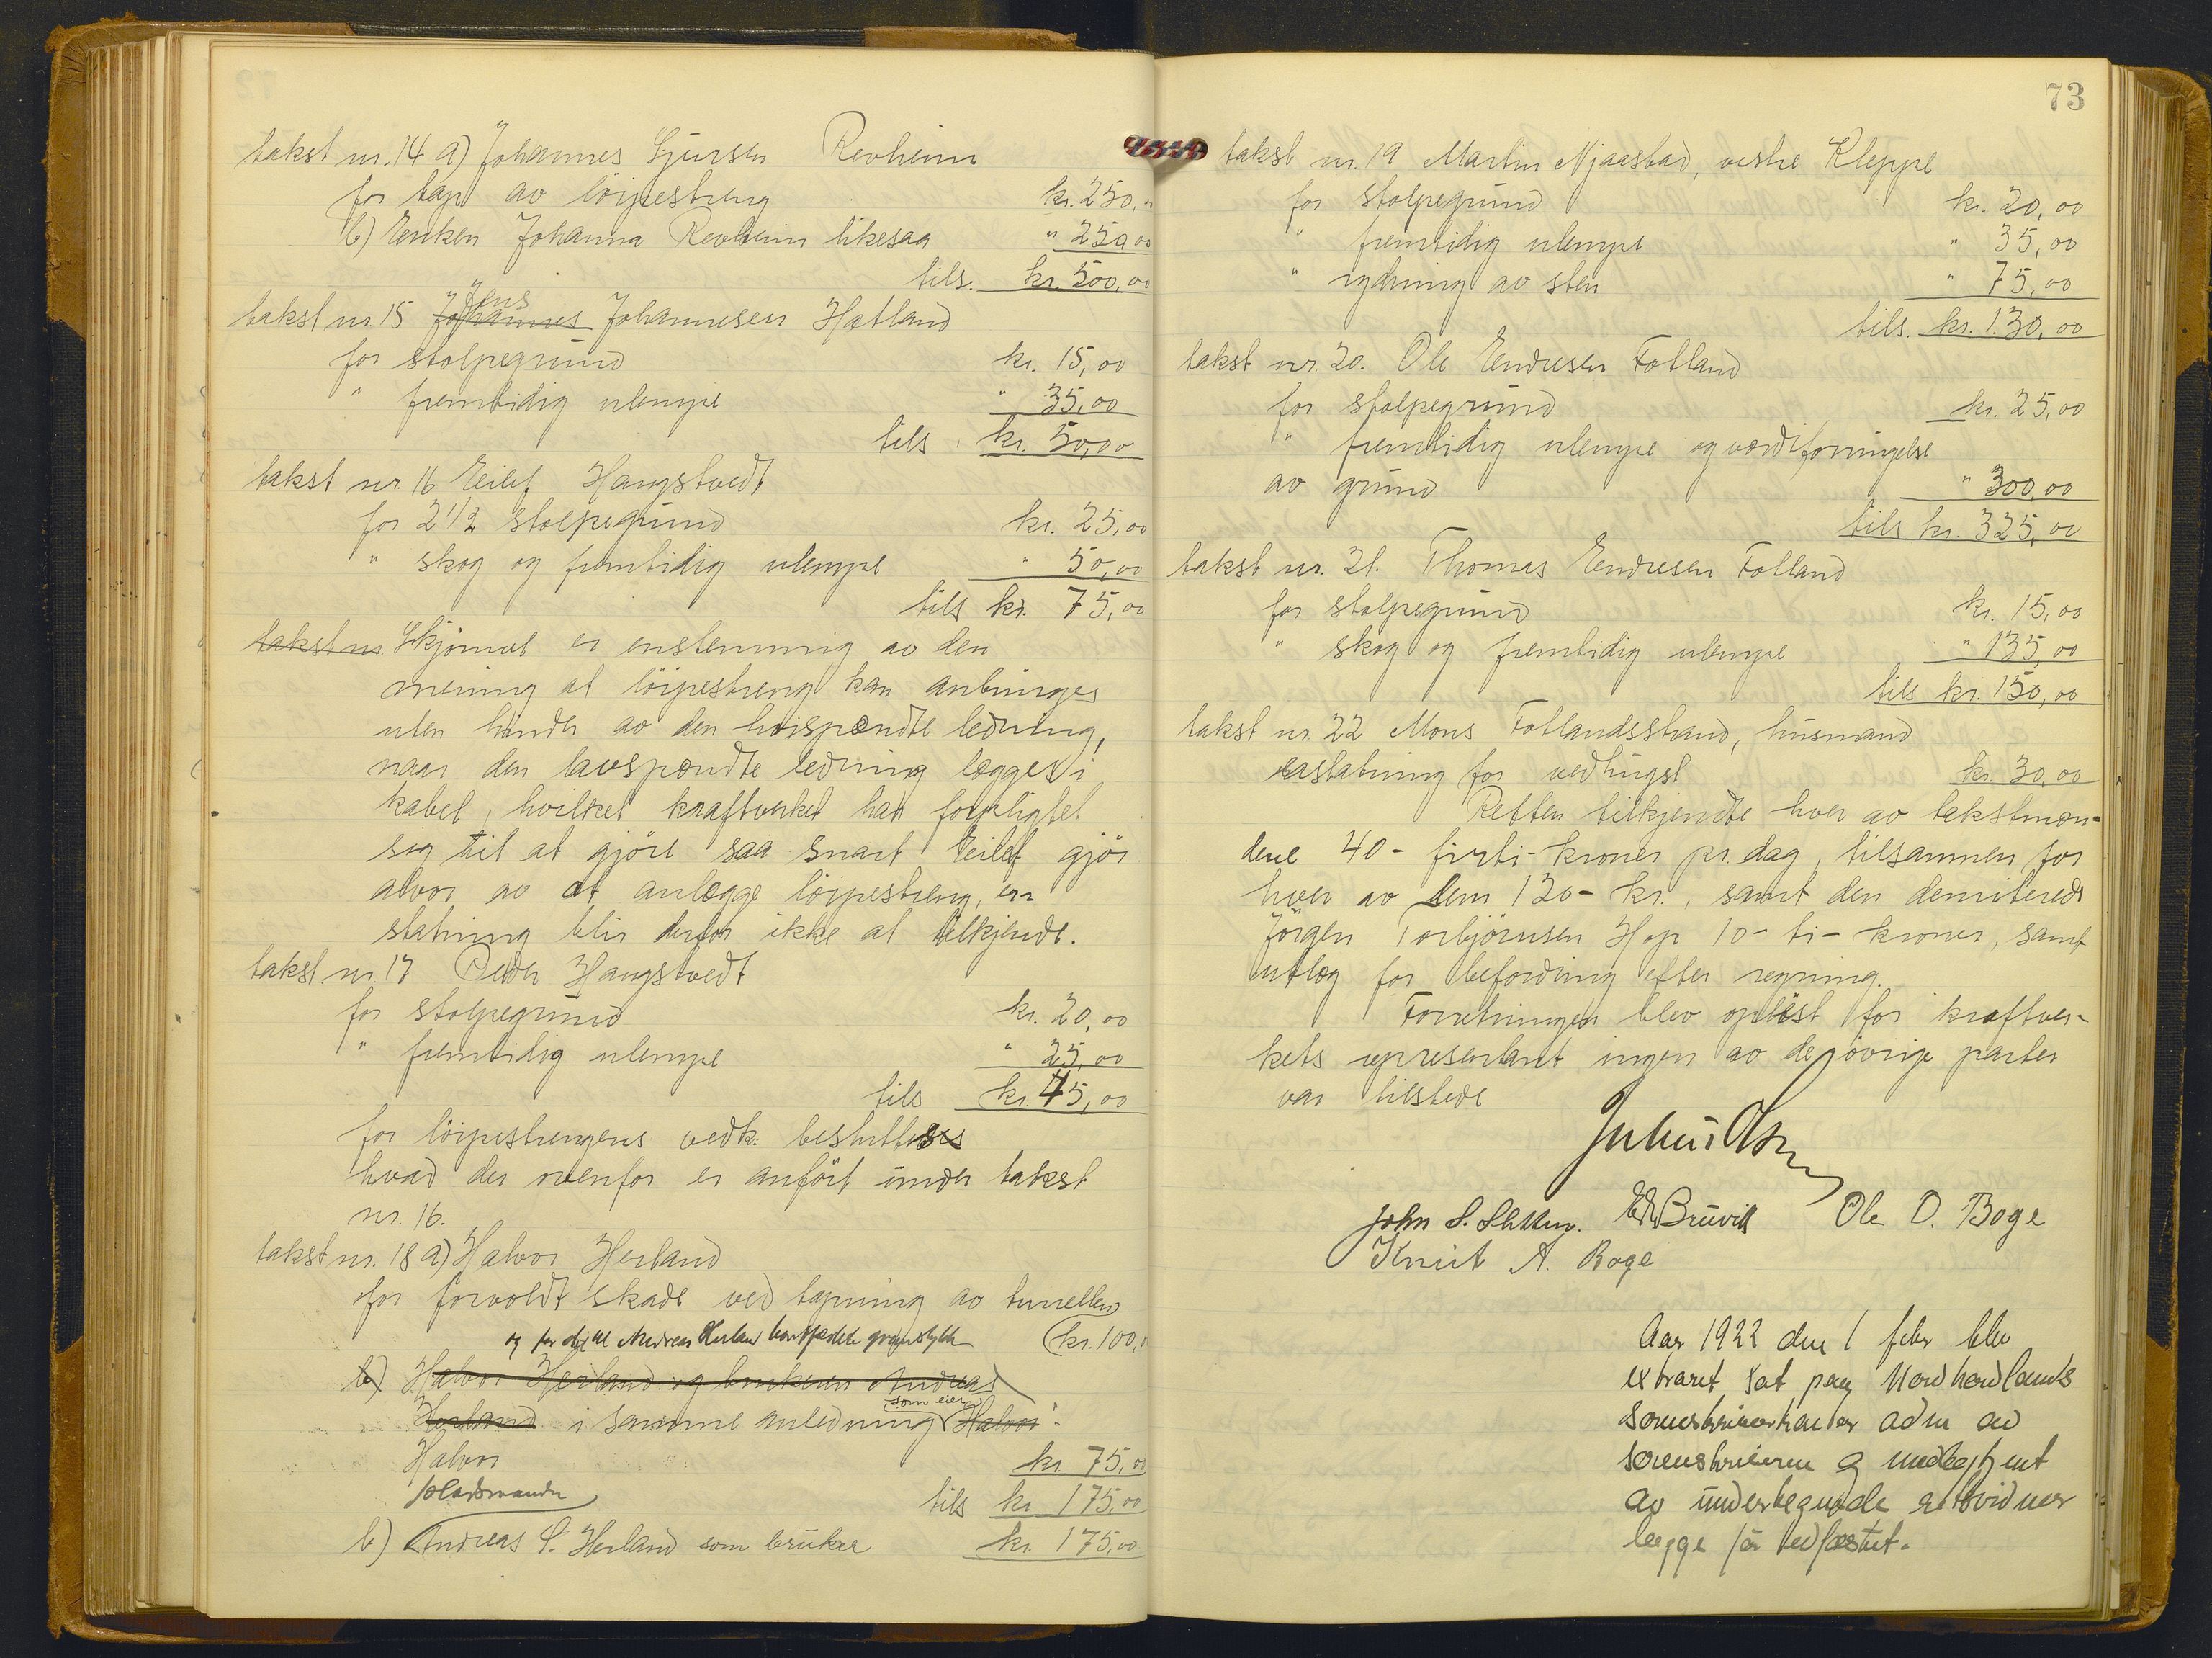 takst nr. 14 a) Johannes Sjursen Revheim
for tap av löipestreng kr. 250,"
b) Enken Johanna Revheim likesaa " 250 00
tils. kr. 500,00
Jens
takst nr. 15 Johannes Johannesen Hatland
for stolpegrund kr. 15,00
" fremtidig ulempe " 35,00
tils kr. 50,00
takst nr. 16 Eilef Haugstvedt
for 2 1/2 stolpegrund kr. 25,00
" skog og fremtidig ulempe " 50,00
tils kr. 75,00
takst nr. Skjönnet er enstemmig av den
mening at löipestreng kan anbringes
uten hinder av den höispændte ledning,
naar den lavspændte ledning lægges i
kabel, hvilket kraftverket har forpligtet
sig til at gjöre saa snart Eilef gjör
alvor av at anlægge löipestreng, er-
statning blir derfor ikke at tilkjende.
takst nr. 17 Peder Haugstvedt
for stolpegrund kr. 20,00
" fremtidig ulempe " 25,00
tils kr. 45,00
for löipestrengens vedk. besluttes
hvad der ovenfor er anfört under takst
nr. 16.
takst nr. 18 a) Halvor Herland
for forvoldt skade ved tapning av tunellen
og for det til Andreas Herland bortfæstede kr. 100,"
b) Halvor Herland og brukeren Andreas
som eier
Herland i samme anledning Halvor
Halvor kr. 75,00
pladsmanden tils kr. 175,00
b) Andreas S. Herland som bruker kr. 175,00
73
takst nr. 19 Martin Njaastad, vestre Kleppe
for stolpegrund kr. 20,00
" fremtidig ulempe " 35,00
" rydning av sten " 75,00
tils. kr. 130,00
takst nr. 20. Ole Endresen Fotland
for stolpegrund kr. 25,00
" fremtidig ulempe og værdiforringelse
av grund " 300,00
tils kr. 325,00
takst nr. 21. Thomas Endresen Fotland
for stolpegrund kr. 15,00
" skog og fremtidig ulempe " 135,00
tils kr. 150,00
takst nr. 22 Mons Fotlandsstrand, husmand
erstatning for vedhugst kr. 30,00
Retten tilkjendte hver av takstmæn-
dene 40 - firti - kroner pr. dag, tilsammen for
hver av dem 120 - kr., samt den demiterede
Jörgen Torbjörnsen Hop 10 - ti - kroner, samt
utlæg for befordring efter regning.
Forretningen blev oplæst for kraftver-
kets representant ingen av de övrige parter
var tilstede
Julius Olsen
John S. E. Bruvik Ole O. Boge
Knut A. Boge
Aar 1922 den 1 febr blev
extraret sat paa Nordhordlands
sorenskriverkontor adm av
sorenskriveren og medbetjent
av undertegnede retsvidner